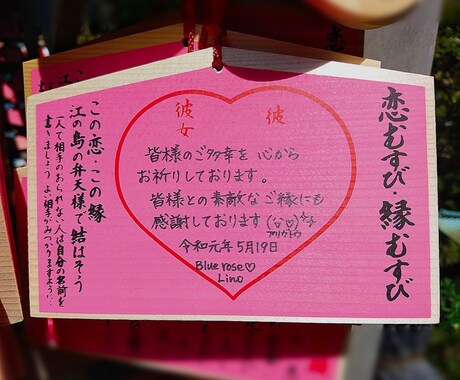 恋むすび・縁むすび
彼
彼女
皆様のご多幸を心から
お祈りしております。
皆様との素敵なご縁にも
感謝しております
アリガトウ
令和元年5月19日
Blue rose♡
Lino
この恋・この縁
江の島の弁天様で結ばそう
一人で相手のおられない人は自分の名前を
書きましょう よい相手がみつかりますように…